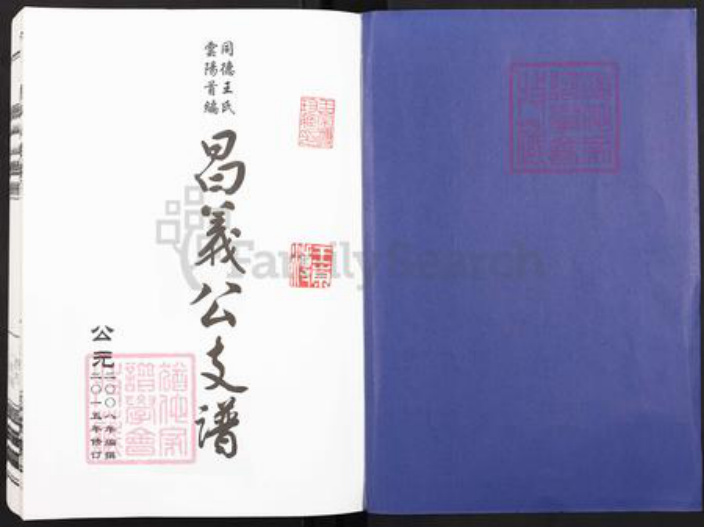 同德王氏
雲陽首編
昌義公支譜
公元二〇〇八年編撰
二〇一五年修订
FamilySearch